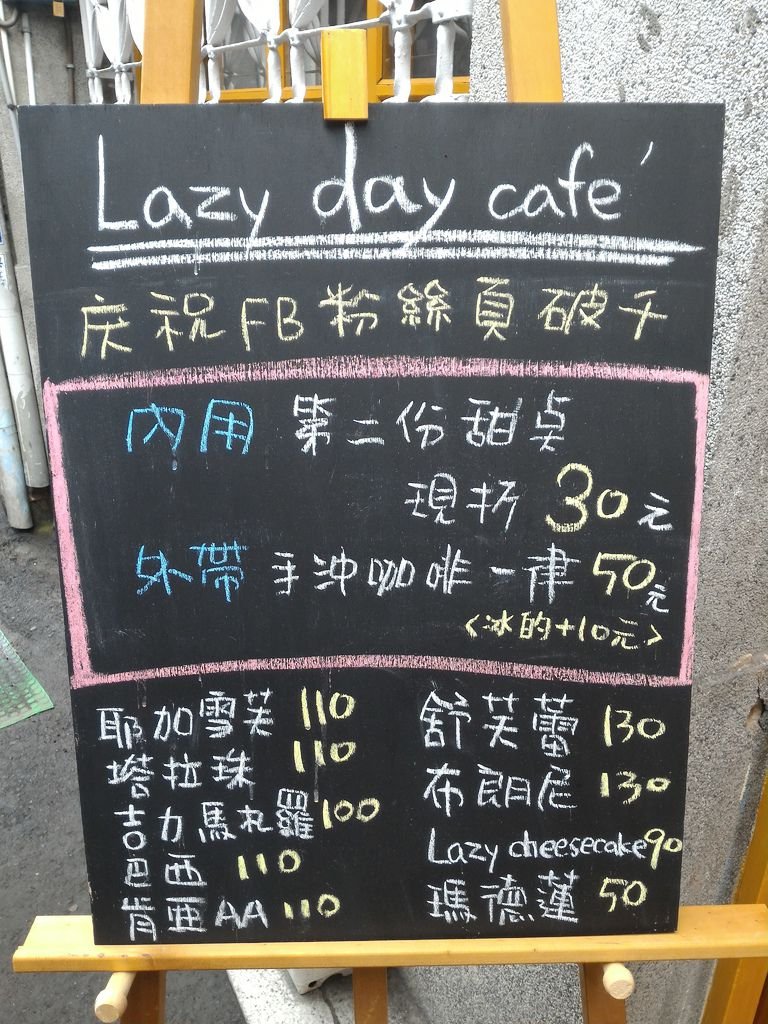 Lazy day café
庆祝FB粉絲頁破千
內用 第二份甜桌
現折 30元
外帶 手沖咖啡一律50元
<冰的+10元>
耶加雪芙 110
塔拉珠 110
吉力馬札羅 100
巴西 110
肯亜AA 110
舒芙蕾 130
布朗尼 130
Lazy cheesecake 90
瑪德蓮 50